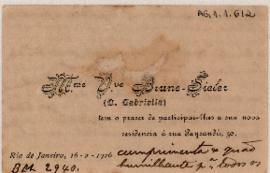 AG.1.1.612
Mme Vve Bruno-Sieler
(D. Gabriella)
tem o prazer de participar-lhes a sua nova
residencia á rua Paysandú, 30.
Rio de Janeiro, 16-2-1916
cumprimenta e
humilhante pa todos os
2940.